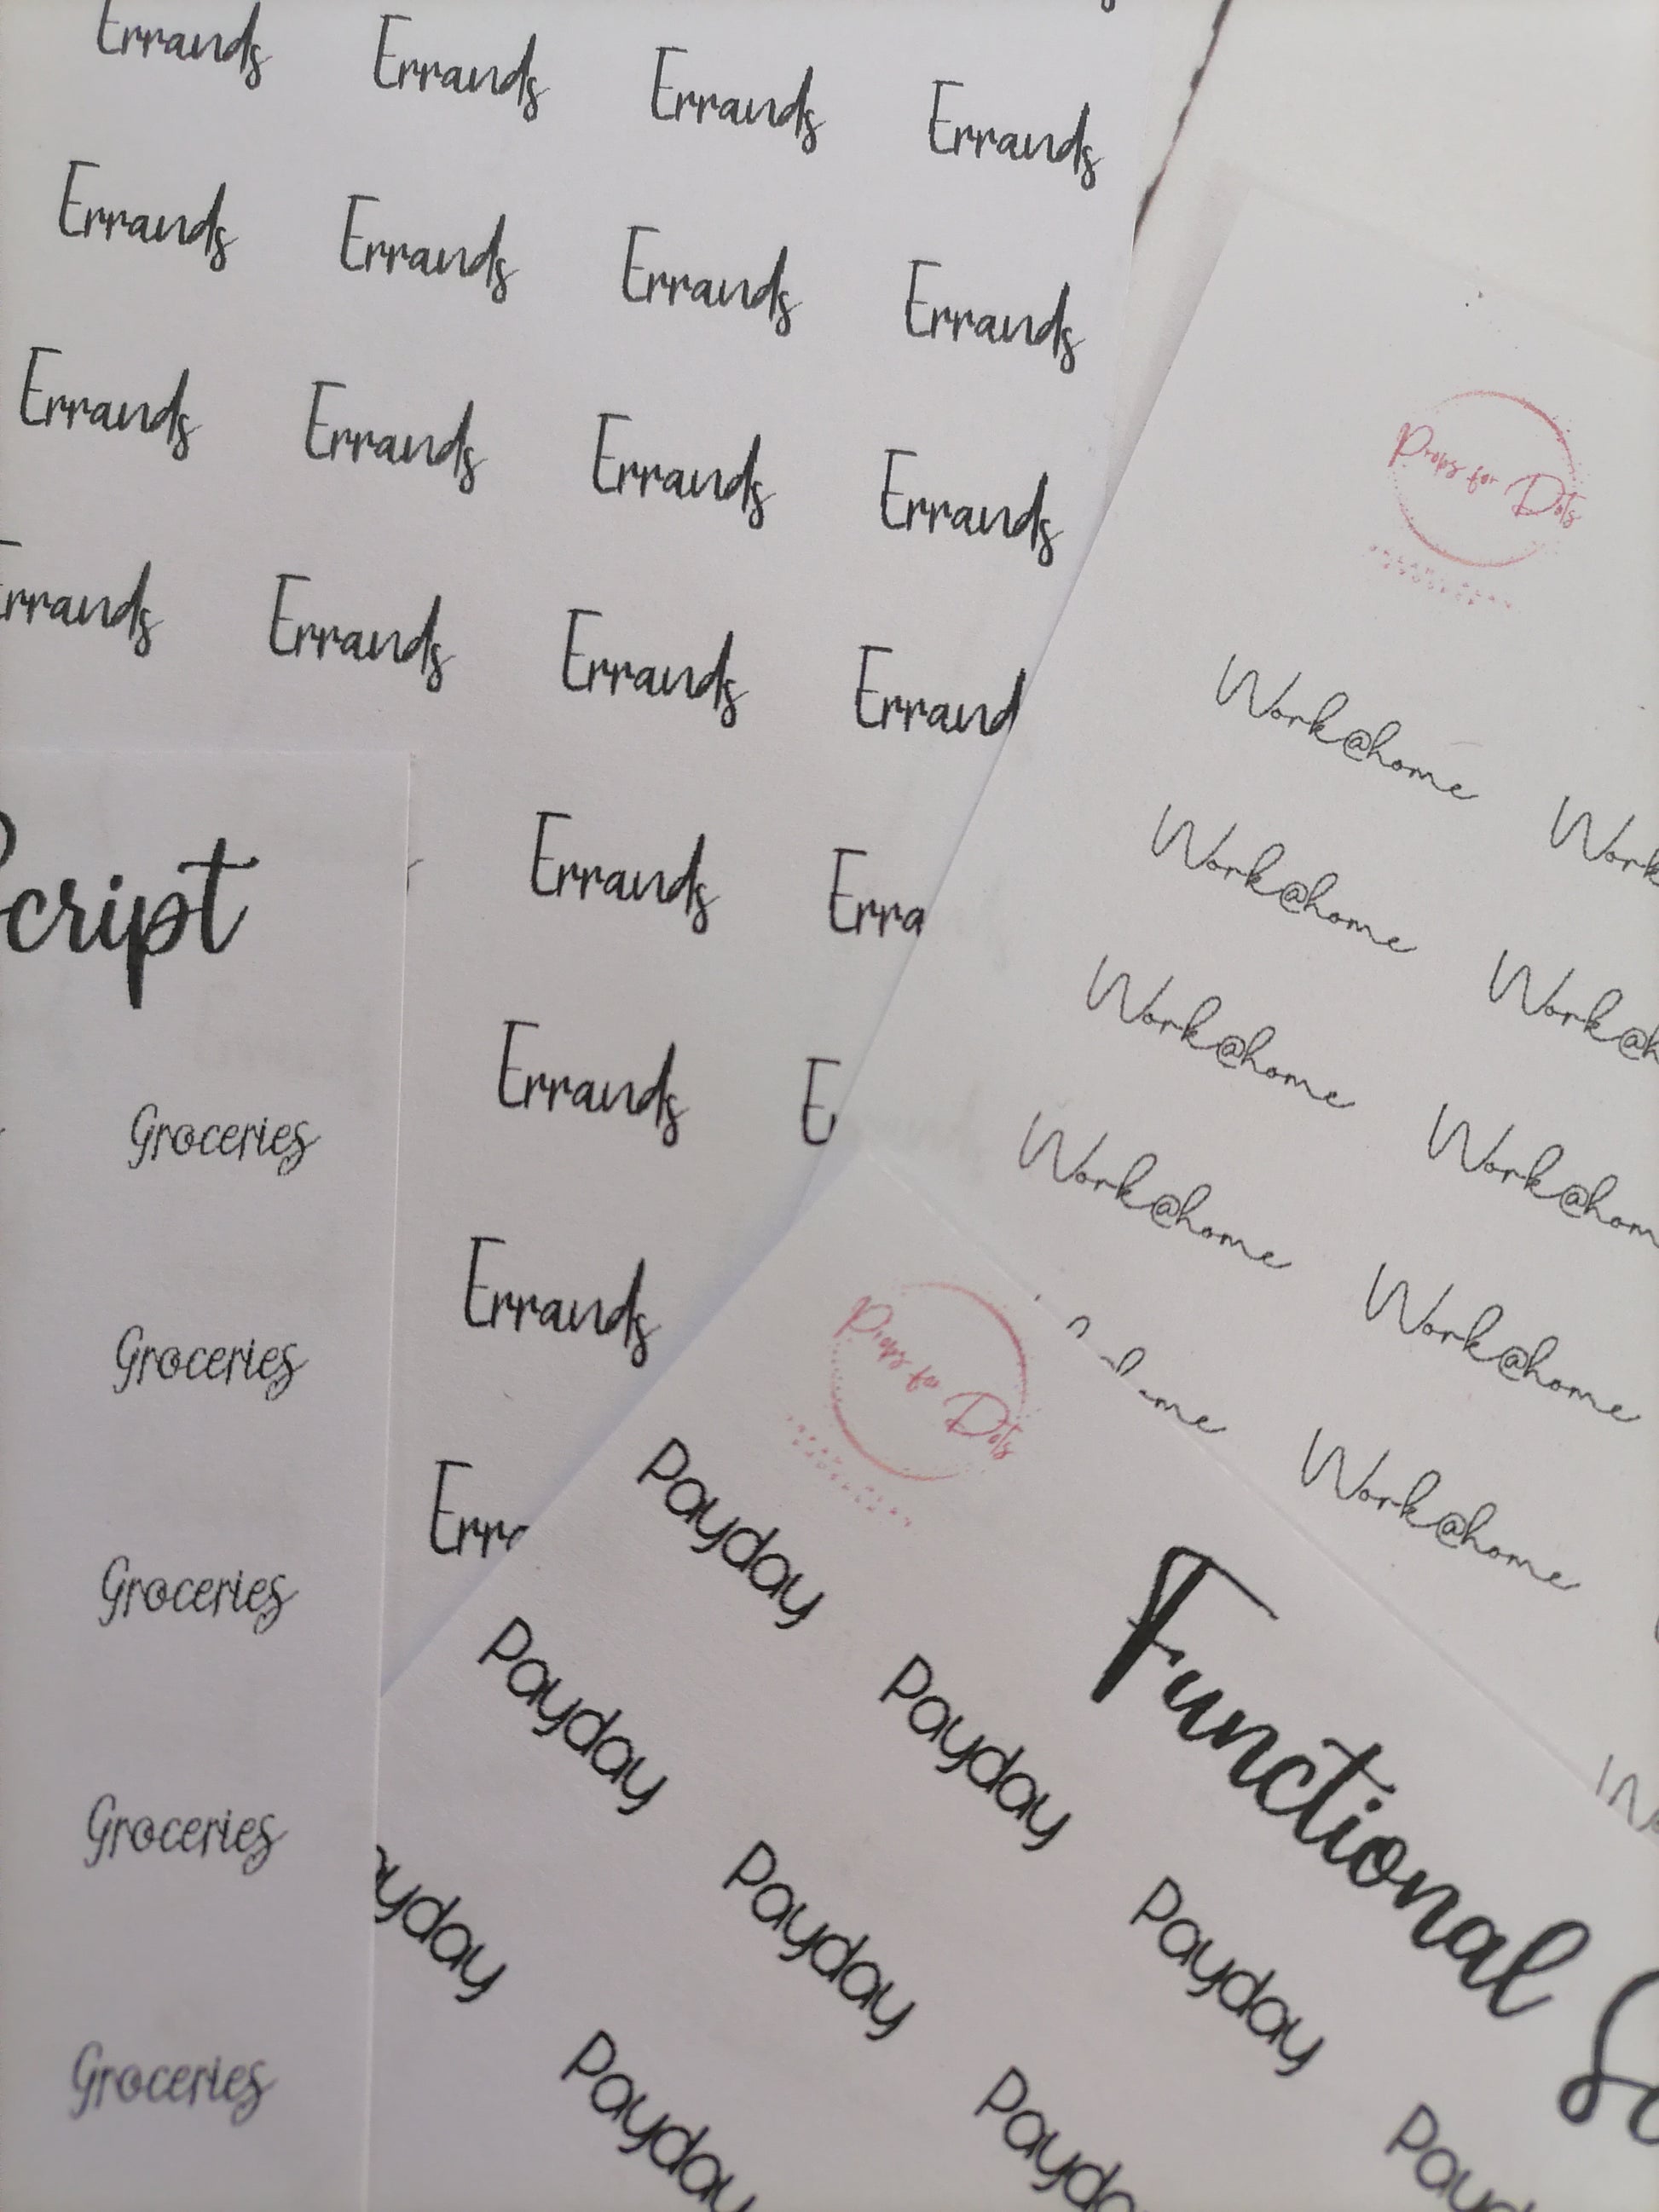 Errands Errands Errands Errands
Errands Errands Errands Errands
Errands Errands Errands Errands
rrands Errands Errands Errand
Errands Erra
Errands E
Errands
Erra
Props for Dots
Work@home Work
Work@home Work@h
Work@home Work@hom
Work@home Work@home
ome Work@home
cript
Groceries
Groceries
Groceries
Groceries
Groceries
Props for Dots
Functional Sc
Payday
Payday Payday
yday Payday Payday
Payday Payda Payd